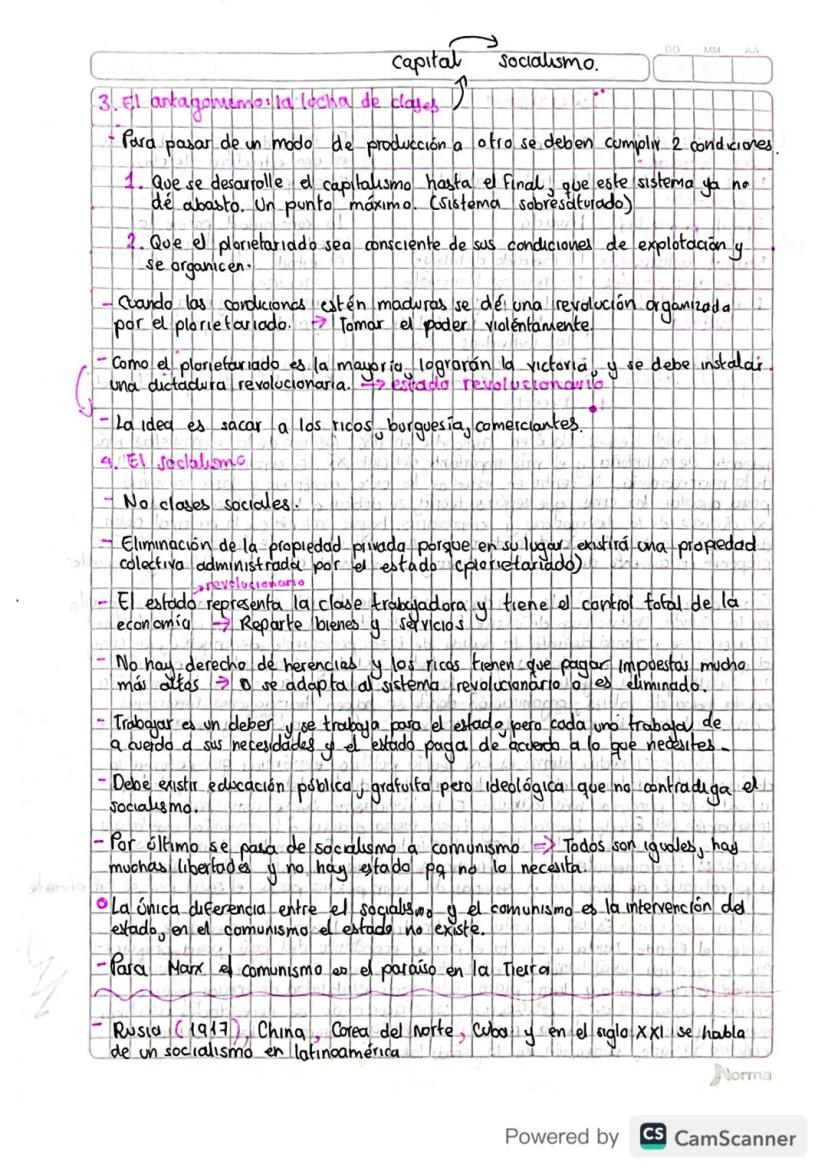 DD MM AA
Capital → socialismo.
3. El antagonismo: la lucha de clases
- Para pasar de un modo de producción a otro se deben cumplir 2 condiciones.
1. Que se desarrolle el capitalismo hasta el final, que este sistema ya no
dé abasto. Un punto máximo. (sistema sobresaturado)
2. Que el plorietariado sea consciente de sus condiciones de explotación y
se organicen.
- Cuando las condiciones estén maduras se dé una revolución organizada
por el plorietariado. → Tomar el poder violéntamente.
- Como el plorietariado es la mayoría, lograrán la victoria, y se debe instalar
una dictadura revolucionaria. → estado revolucionario
- La idea es sacar a los ricos, burguesía, comerciantes.
4. El socialismo
- No clases sociales.
- Eliminación de la propiedad privada porque en su lugar existirá una propiedad
colectiva administrada por el estado (plorietariado)
→ revolucionario
- El estado representa la clase trabajadora y tiene el control total de la
economía → Reparte bienes y servicios
- No hay derecho de herencias y los ricos tienen que pagar impuestos mucho
más altos → O se adapta al sistema revolucionario o es eliminado.
- Trabajar es un deber y se trabaja para el estado, pero cada uno trabaja de
acuerdo a sus necesidades y el estado paga de acuerdo a lo que necesites.
- Debe existir educación pública, gratuita pero ideológica que no contradiga el
socialismo.
- Por último se pasa de socialismo a comunismo ⇒ Todos son iguales, hay
muchas libertades y no hay estado pq no lo necesita.
La única diferencia entre el socialismo y el comunismo es la intervención del
estado, en el comunismo el estado no existe.
- Para Marx el comunismo es el paraíso en la Tierra
- Rusia (1917), China, Corea del Norte, Cuba y en el siglo XXI se habla
de un socialismo en latinoamérica
Norma
Powered by CS CamScanner